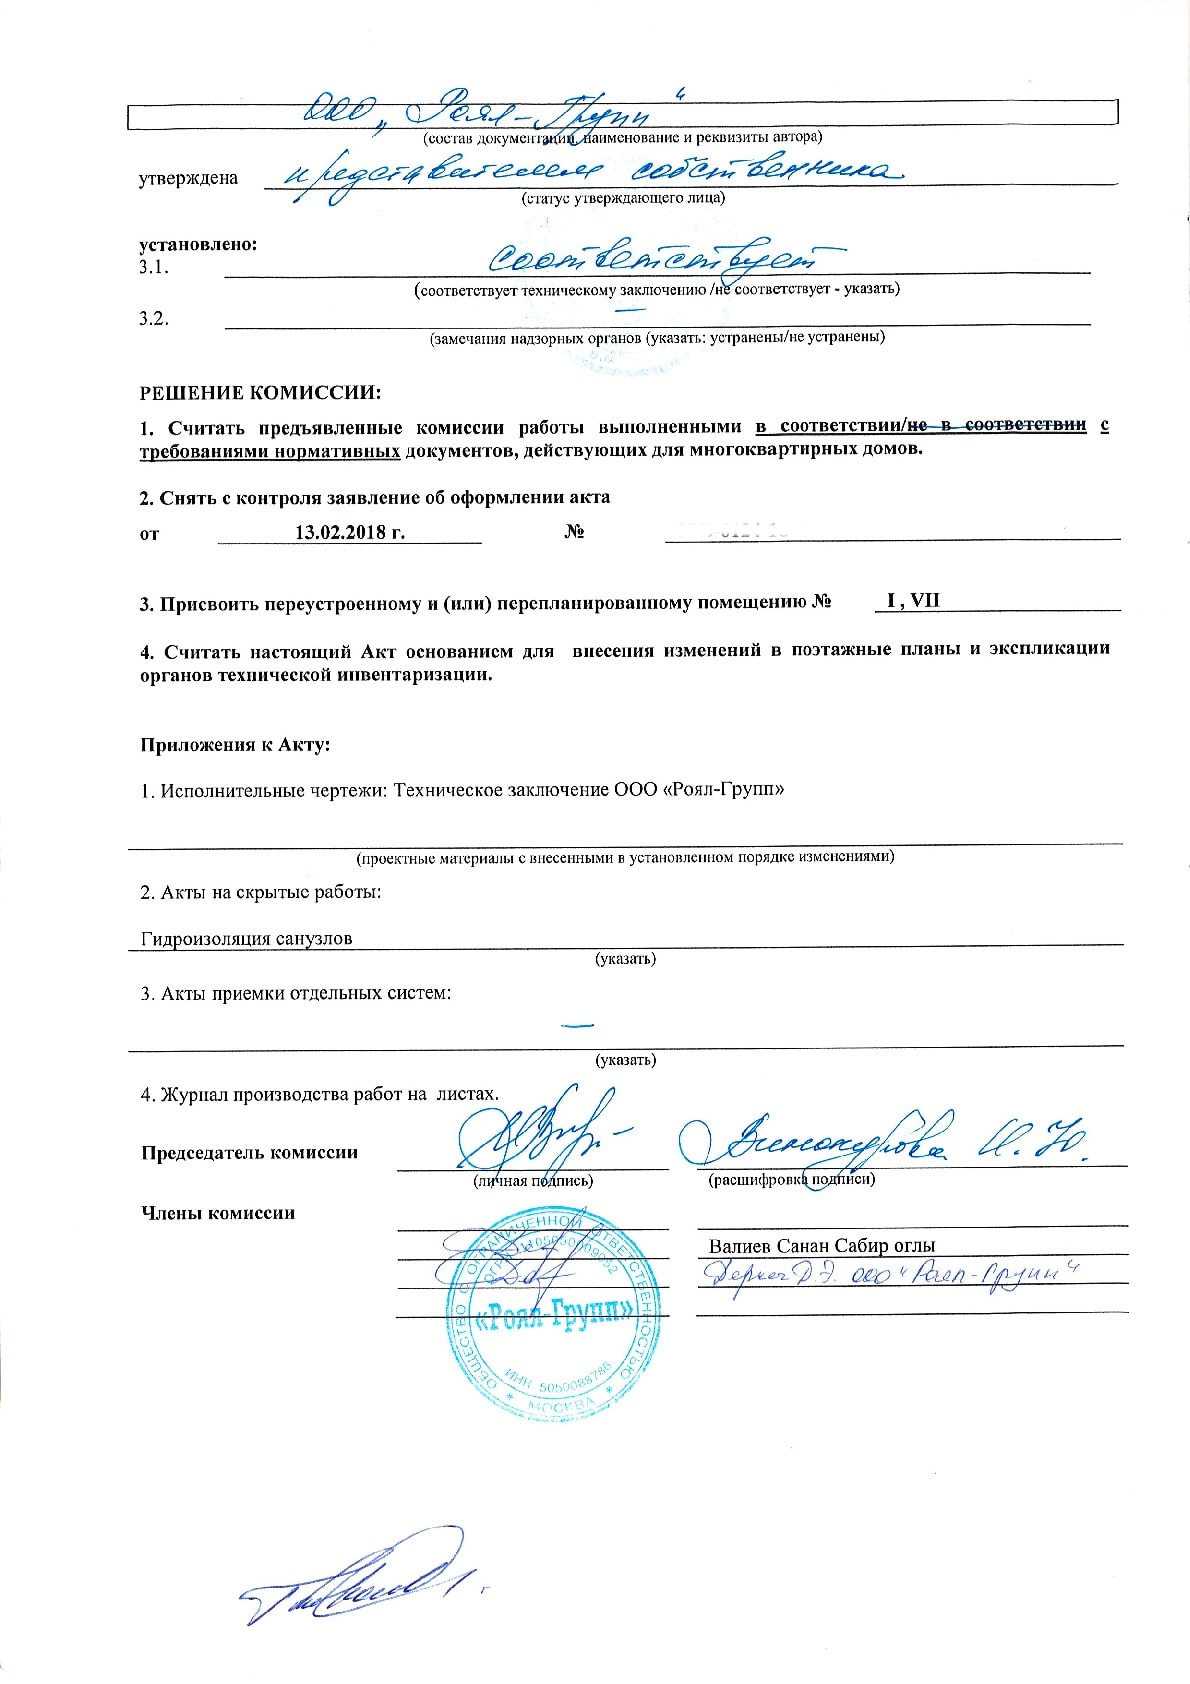 ООО „Роял-Групп“
(состав документации, наименование и реквизиты автора)
утверждена представителем собственника
(статус утверждающего лица)
установлено:
3.1. соответствует
(соответствует техническому заключению /не соответствует - указать)
3.2. —
(замечания надзорных органов (указать: устранены/не устранены)
РЕШЕНИЕ КОМИССИИ:
1. Считать предъявленные комиссии работы выполненными в соответствии/не в соответствии с
требованиями нормативных документов, действующих для многоквартирных домов.
2. Снять с контроля заявление об оформлении акта
от 13.02.2018 г. №
3. Присвоить переустроенному и (или) перепланированному помещению № I , VII
4. Считать настоящий Акт основанием для внесения изменений в поэтажные планы и экспликации
органов технической инвентаризации.
Приложения к Акту:
1. Исполнительные чертежи: Техническое заключение ООО «Роял-Групп»
(проектные материалы с внесенными в установленном порядке изменениями)
2. Акты на скрытые работы:
Гидроизоляция санузлов
(указать)
3. Акты приемки отдельных систем:
—
(указать)
4. Журнал производства работ на листах.
Председатель комиссии Винокурова И. Ю.
(личная подпись) (расшифровка подписи)
Члены комиссии
Валиев Санан Сабир оглы
Д.Э. ООО "Роял-Групп"
ОБЩЕСТВО С ОГРАНИЧЕННОЙ ОТВЕТСТВЕННОСТЬЮ
ОГРН
«Роял-Групп»
ИНН 5050088786
* МОСКВА *